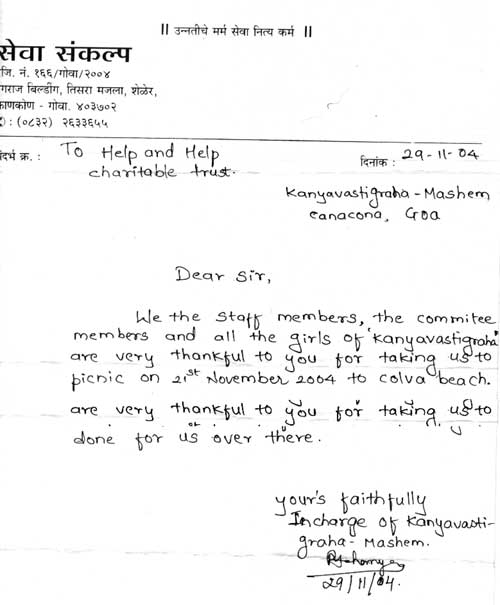 || उन्नतीचे मर्म सेवा नित्य कर्म ||
सेवा संकल्प
जि. नं. १६६/गोवा/२००४
गराज बिल्डींग, तिसरा मजला, शेळेर,
काणकोण - गोवा. ४०३७०२
: (०८३२) २६३३६५५
संदर्भ क्र. : To Help and Help
charitable trust.
दिनांक : 29-11-04
Kanyavastigraha - Mashem
canacona, Goa
Dear Sir,
We the staff members, the commitee
members and all the girls of 'Kanyavastigraha'
are very thankful to you for taking us to
picnic on 21st November 2004 to colva beach.
are very thankful to you for taking us to
done for us over there.
your's faithfully
Incharge of Kanyavasti-
graha - Mashem.
29/11/04.